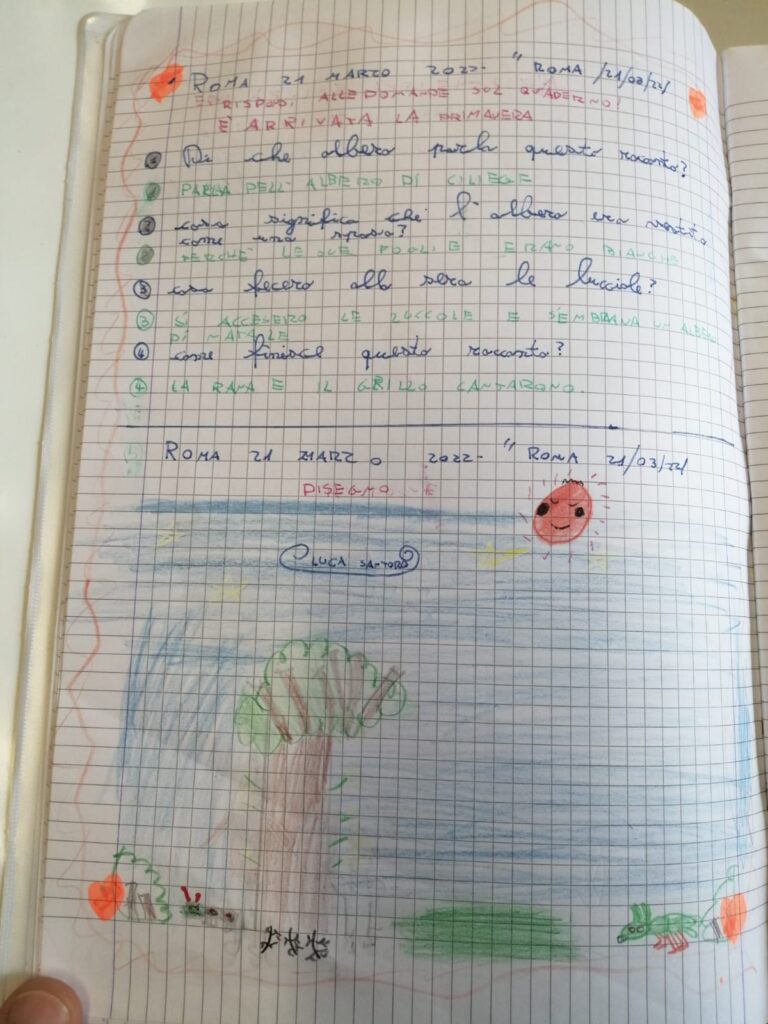 ROMA 21 MARZO 2022- " ROMA 21/03/22
ES RISPODI ALLE DOMANDE SUL QUADERNO!
È ARRIVATA LA PRIMAVERA
1 Di che albero parla questo racconto?
1 PARLA DELL'ALBERO DI CILIEGE
2 cosa significa che l'albero era vestito
come una sposa?
2 PERCHÈ LE SUE FOGLIE ERANO BIANCHE
3 cosa fecero alla sera le lucciole?
3 SI ACCESERO LE LUCCOLE E SEMBRANA UN ALBERO
DI NATALE
4 come finisce questo racconto?
4 LA RANA E IL GRILLO CANTARONO.
5 ROMA 21 MARZO 2022- " ROMA 21/03/22
DISEGNO
LUCA SANTORO